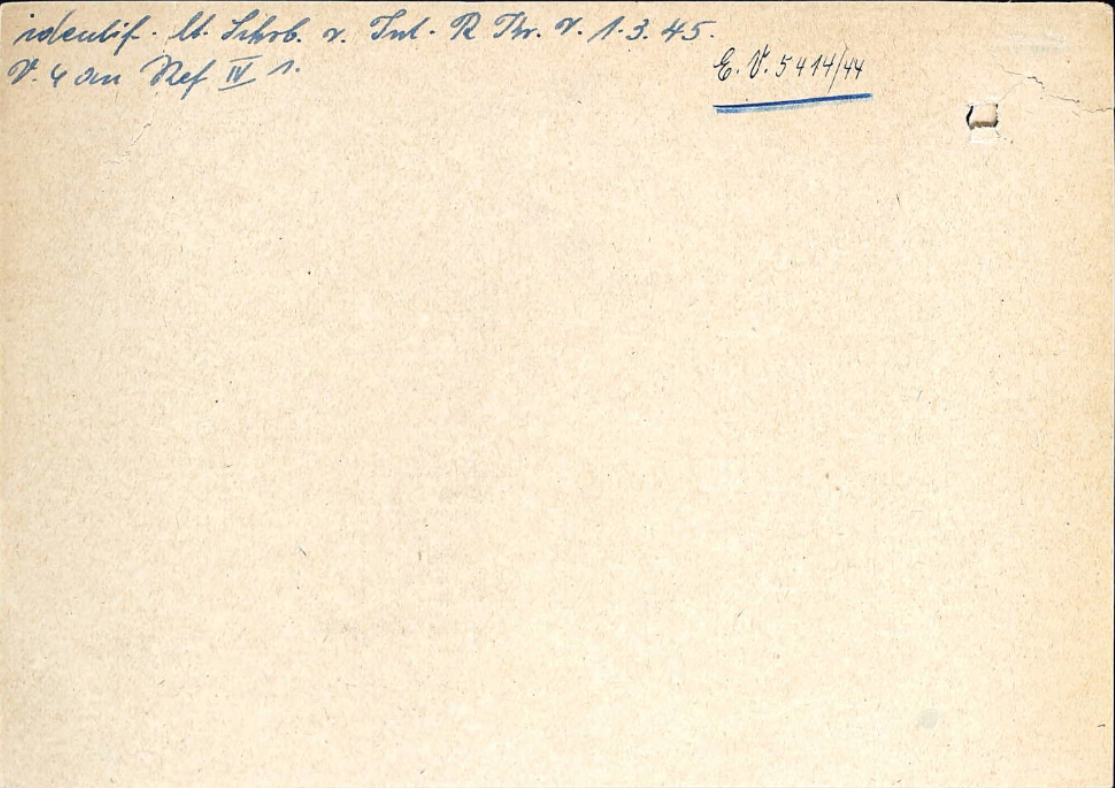 identif. lt. Schrb. v. Int. R Kr. v. 1.3.45.
V. 4 an Ref IV 1.
E. V. 5414/44